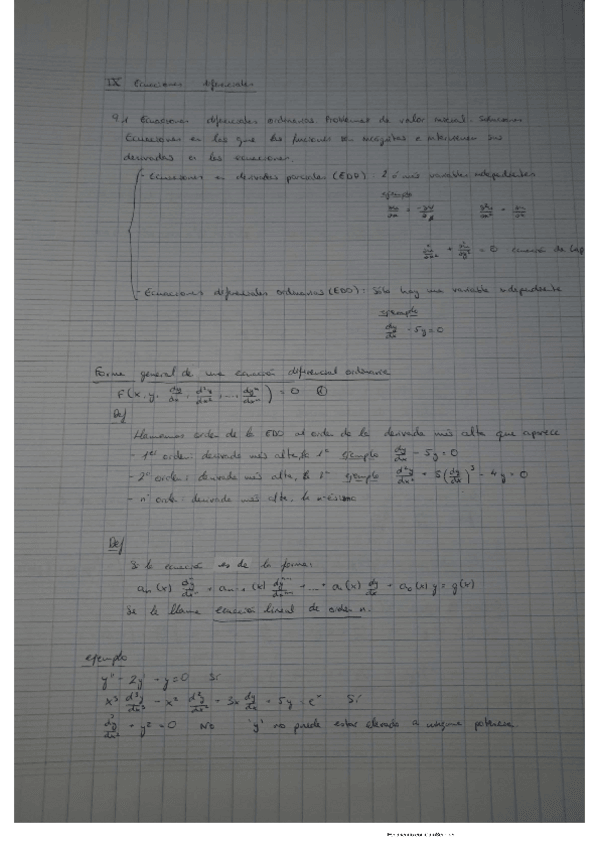 IX Ecuaciones diferenciales
9.1 Ecuaciones diferenciales ordinarias. Problemas de valor inicial. Soluciones
Ecuaciones en las que las funciones son incógnitas e intervienen sus
derivadas en las ecuaciones.
- Ecuaciones en derivadas parciales (EDP): 2 ó más variables independientes
ejemplo
= 0 ecuación de Lap
- Ecuaciones diferenciales ordinarias (EDO): Sólo hay una variable independiente
ejemplo
dy/dx - 5y = 0
Forma general de una ecuación diferencial ordinaria
F(x, y, dy/dx, d²y/dx², ..., dyⁿ/dxⁿ) = 0
Def
Llamamos orden de la EDO al orden de la derivada más alta que aparece
- 1er orden: derivada más alta, la 1ª ejemplo dy/dx - 5y = 0
- 2º orden: derivada más alta, la ejemplo d²y/dx² + 5(dy/dx)³ - 4y = 0
- n orden: derivada más alta, la n-ésima
Def
Si la ecuación es de la forma:
aₙ(x) dyⁿ/dxⁿ + aₙ₋₁(x) + ... + a₁(x) dy/dx + a₀(x) y = g(x)
Se le llama ecuación lineal de orden n.
ejemplo
y'' - 2y' + y = 0 Sí
x³ d³y/dx³ - x² d²y/dx² + 3x dy/dx + 5y = eˣ Sí
+ y² = 0 No 'y' no puede estar elevado a ninguna potencia.